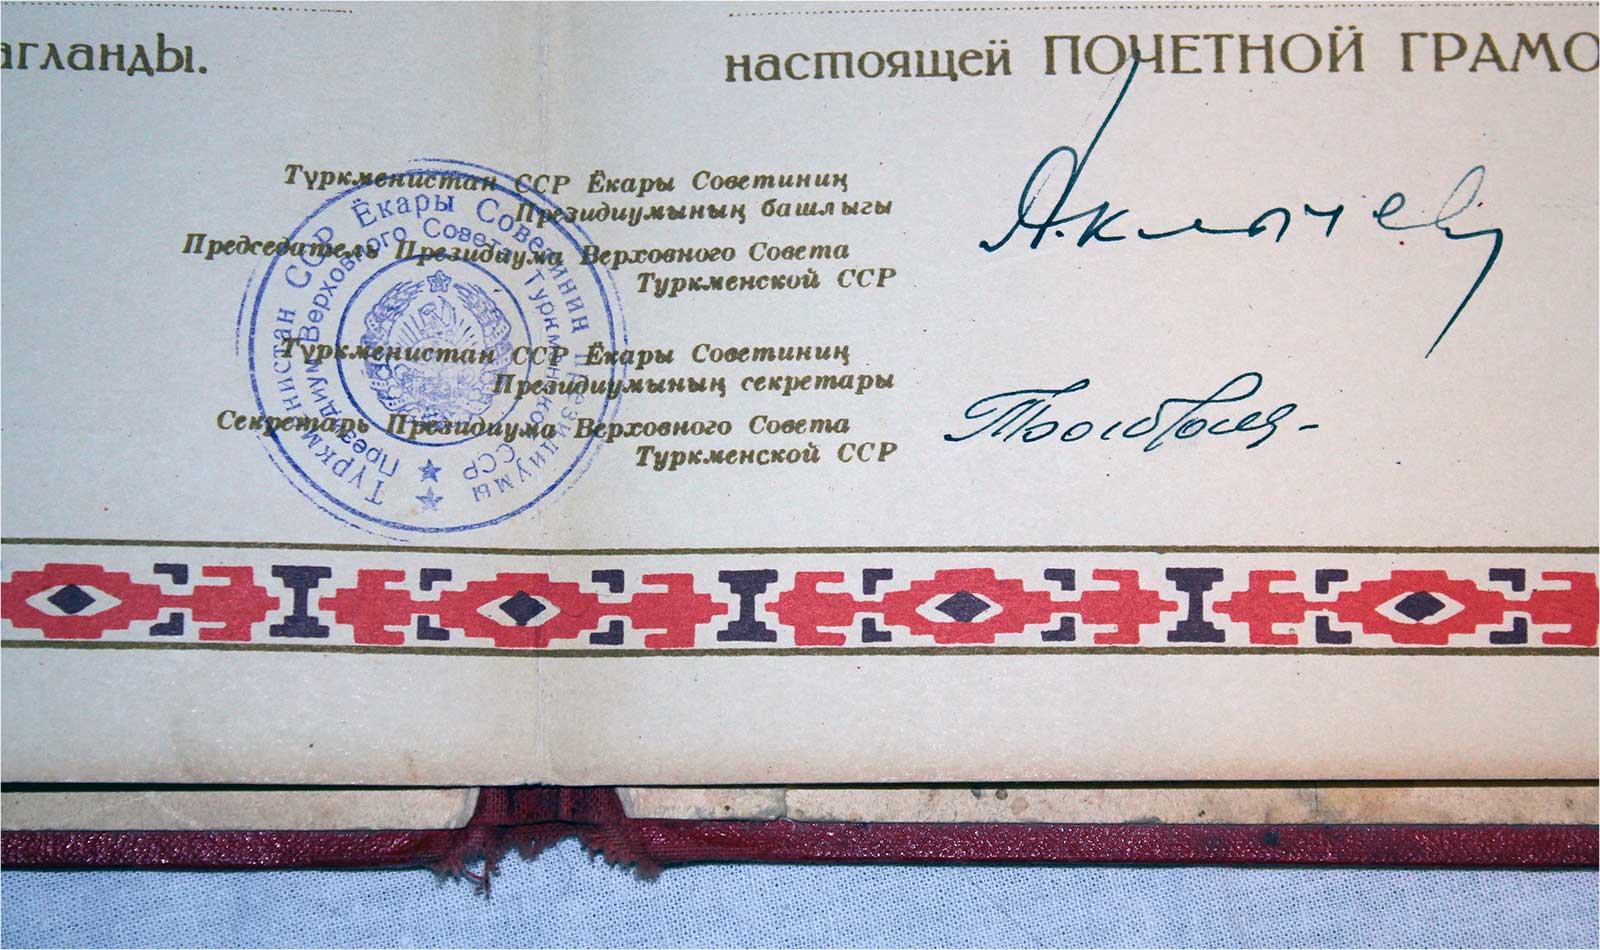 агланды.
настоящей ПОЧЕТНОЙ ГРАМО
Түркменистан ССР Ёкары Советиниң
Президиумының башлыгы
Председатель Президиума Верховного Совета
Туркменской ССР
Түркменистан ССР Ёкары Советиниң
Президиумының секретары
Секретарь Президиума Верховного Совета
Туркменской ССР
Түркменистан ССР Ёкары Советиниң Президиумы
Президиум Верховного Совета Туркменской ССР
А. Клычев